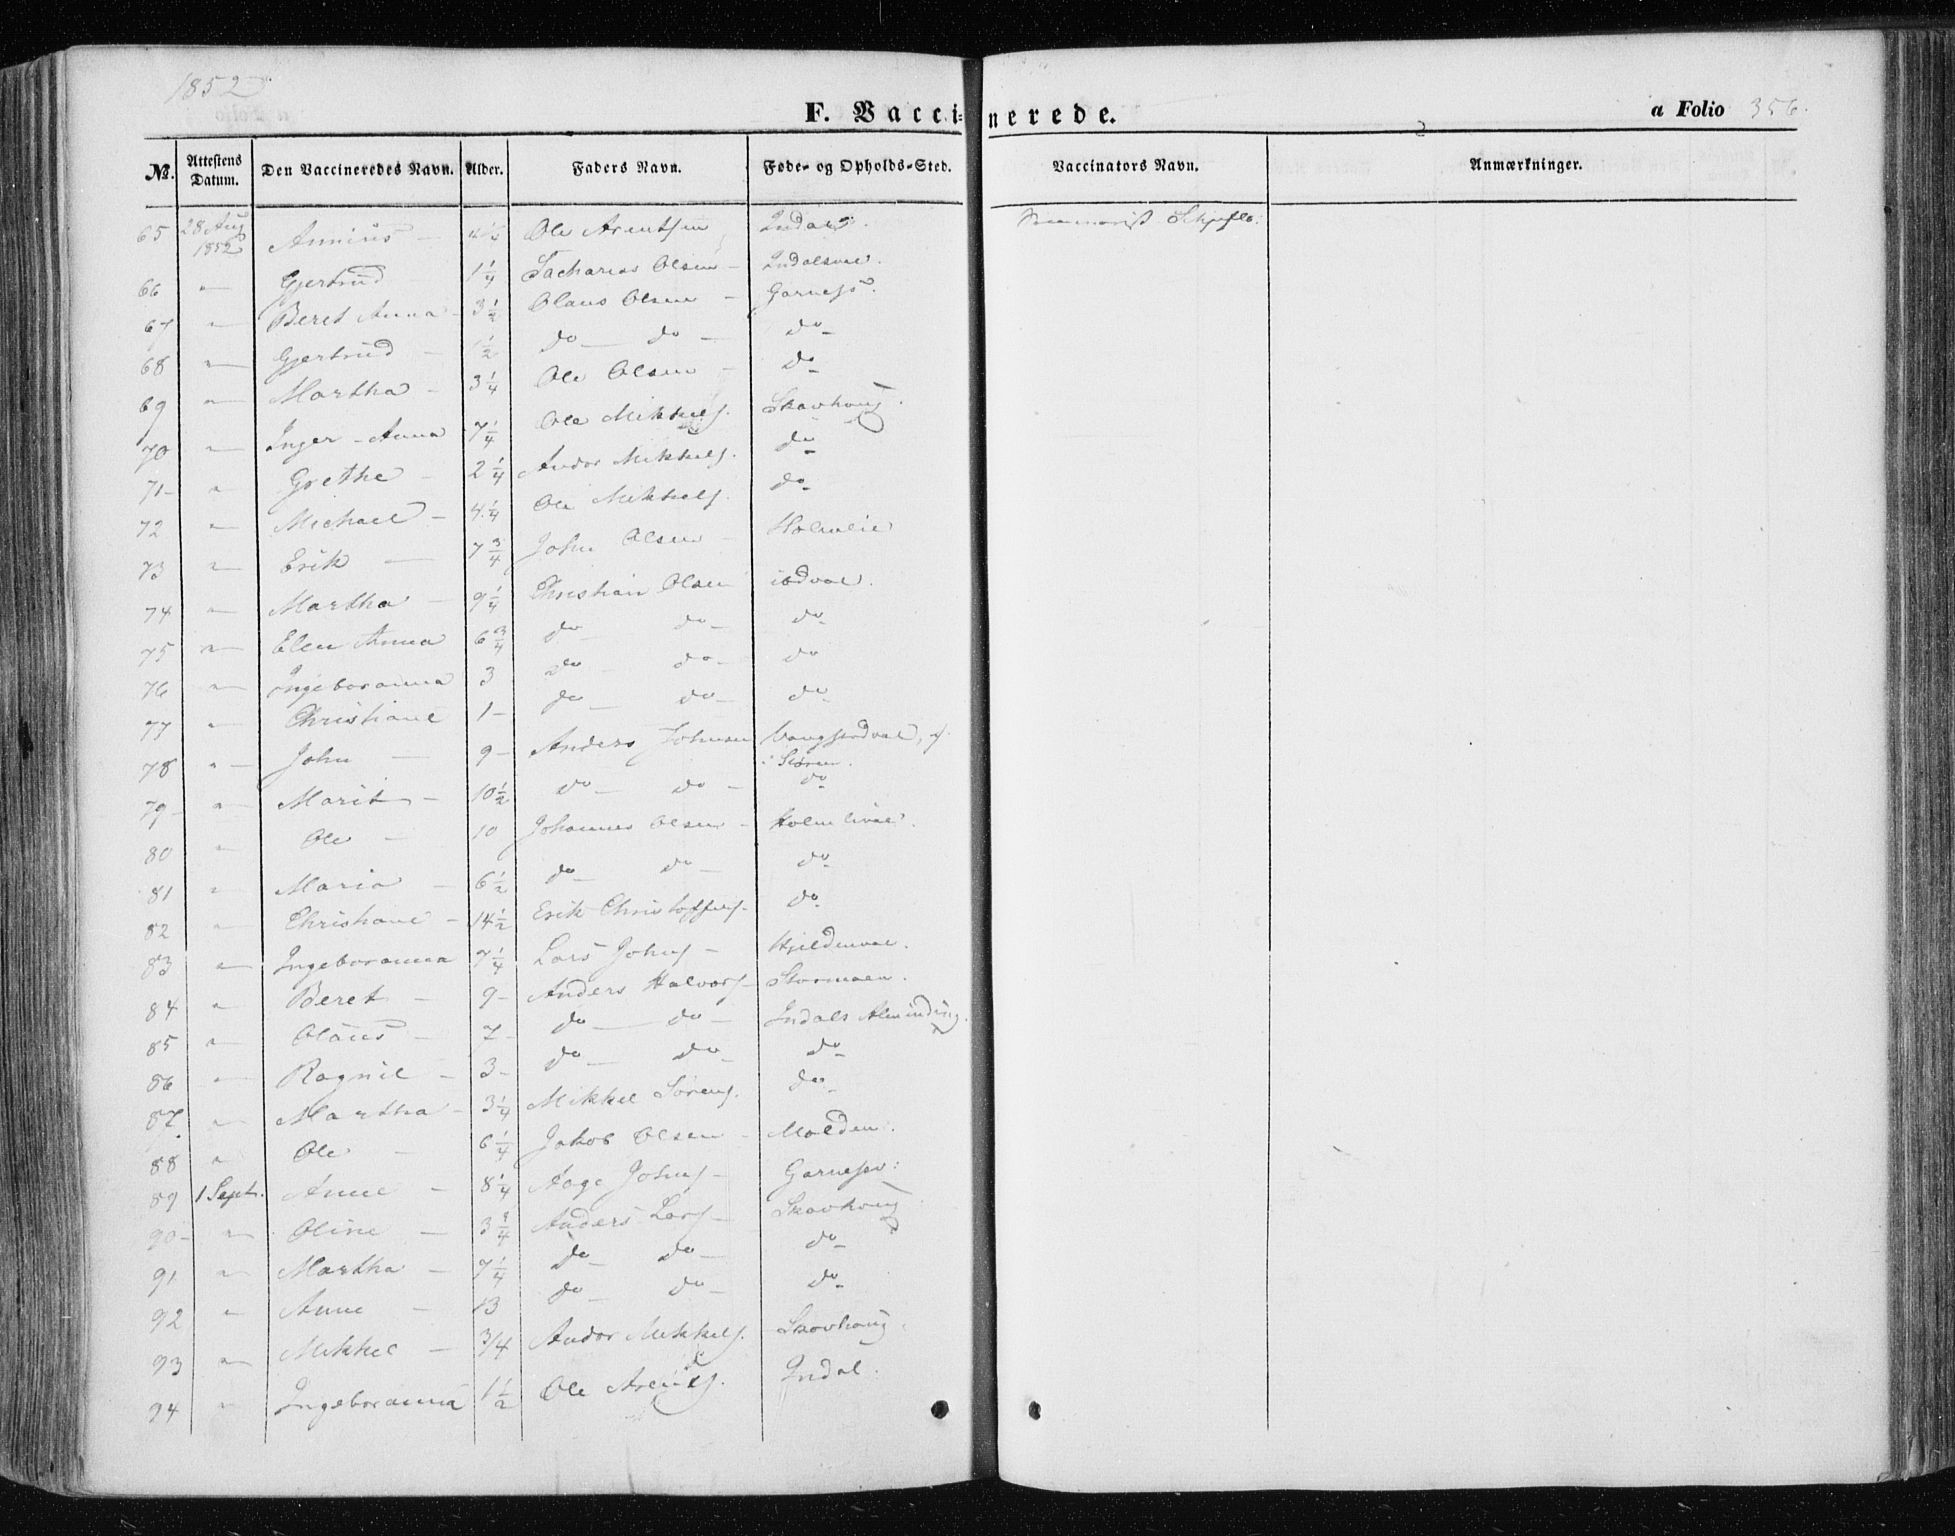 1852
F. Vaccinerede.
a Folio 356.
№. Attestens Datum. Den Vaccineredes Navn. Alder. Faders Navn. Føde- og Opholds-Sted. Vaccinators Navn. Anmærkninger.
65 28 Aug 1852 Ole Arentsen Indal
66 " Gjertrud 1 1/4 Zacharias Olsen Indalsval.
67 " Beret Anna 3 1/2 Olaus Olsen Garness.
68 " Gjertrud 1/2 do do do
69 " Martha 3 1/4 Ole Olsen do
70 " Inger Anna 7 1/4 Ole Mikkels. Skavhaug.
71 " Grethe 2 1/4 Andor Mikkels. do
72 " Michael 4 1/4 Ole Mikkels. do
73 " Erik 7 3/4 John Olsen Holmlie
74 " Martha 9 1/4 Christian Olsen
75 " Elen Anna 6 3/4 do do do
76 " Ingeboranna 3 do do do
77 " Christiane 1 do do do
78 " John 9 Anders Johnsen
79 " Marit 10 1/2 do do do
80 " Ole 10 Johannes Olsen Holmlival.
81 " Maria 6 1/2 do do do
82 " Christiane 14 1/2 Erik Christoffers. do
83 " Ingeboranna 7 1/4 Lars Johns. Hjeldenval.
84 " Beret 9 Anders Halvors. Stormoen.
85 " Olaus 7 do do Indals Alminding.
86 " Ragnil 3 do do do
87 " Martha 3 1/4 Mikkel Sørens. do
88 " Ole 6 1/4 Jakob Olsen Molden.
89 1 Sept. Anne 8 1/4 Aage Johns.
90 " Oline 3 3/4 Anders Lars. Skavhaug
91 " Martha 7 1/4 do do do
92 " Anne 13 do do do
93 " Mikkel 3/4 Andor Mikkels. Skavhaug.
94 " Ingeboranna 1 1/2 Ole Arents. Indal.